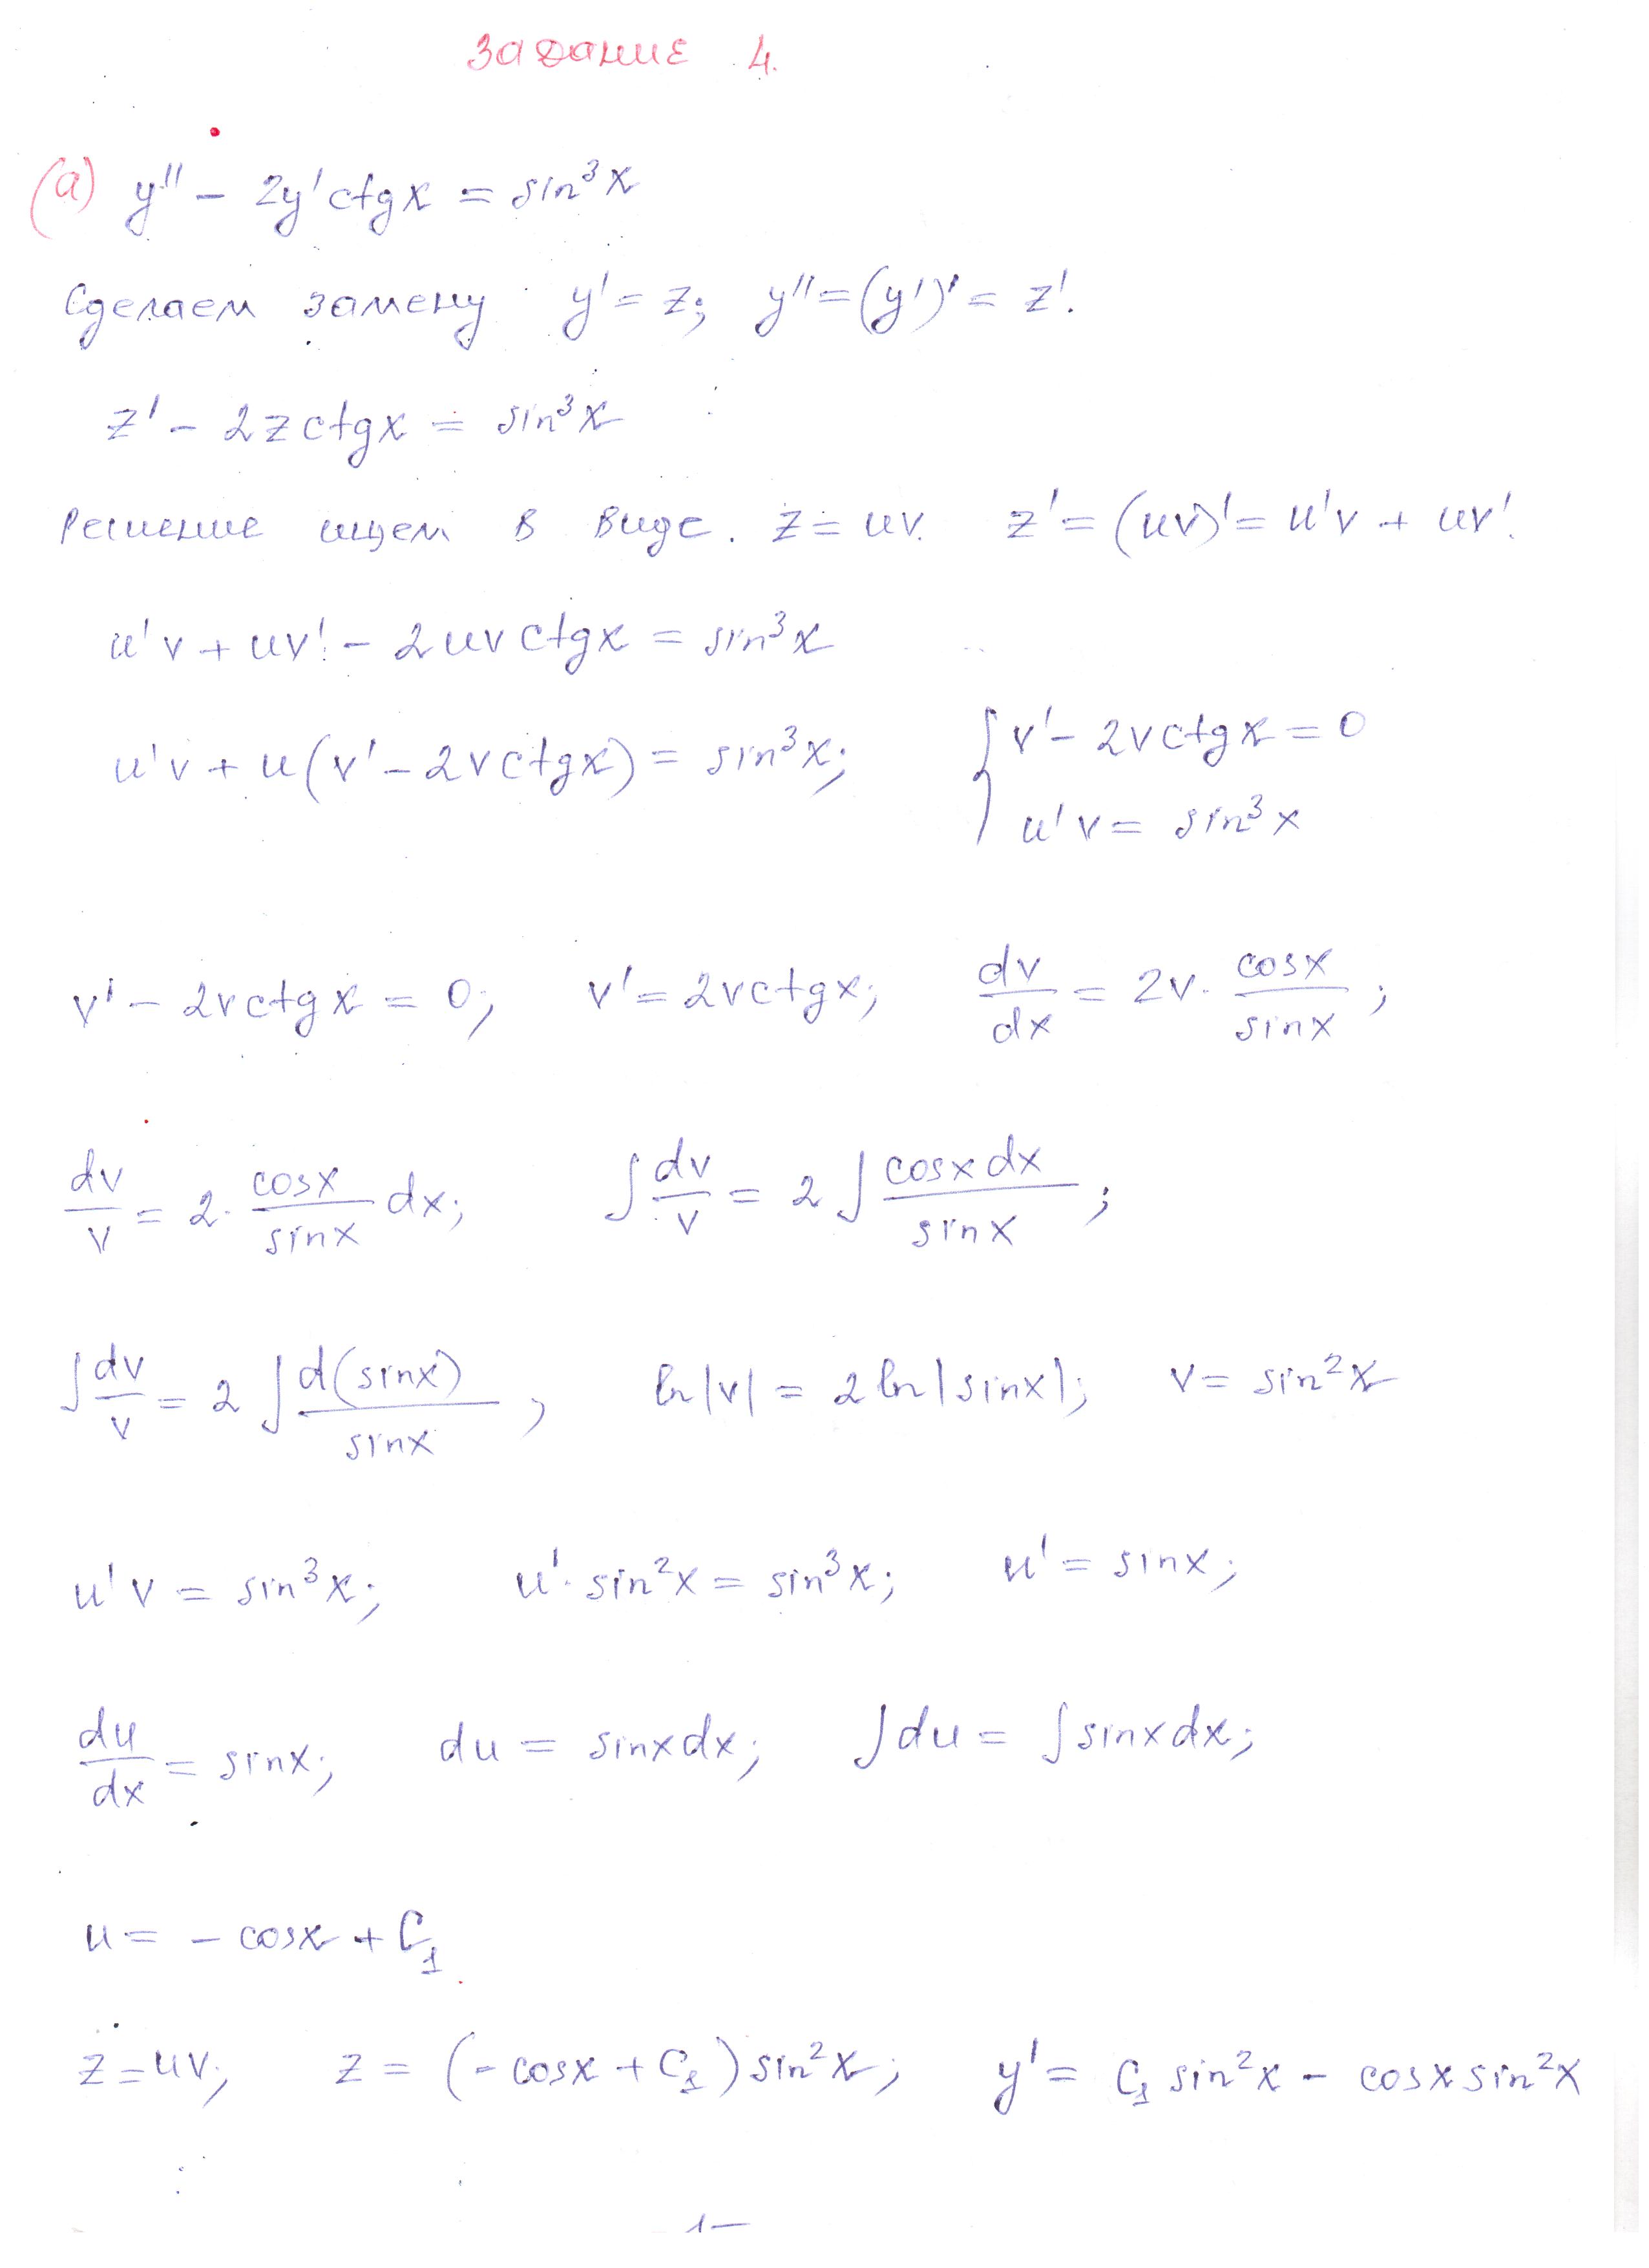 Задание 4.
(а) y'' - 2y' ctgx = sin³x
Сделаем замену y' = z; y'' = (y')' = z'.
z' - 2z ctgx = sin³x
Решение ищем в виде. z = uv. z' = (uv)' = u'v + uv'.
u'v + uv' - 2uv ctgx = sin³x
u'v + u(v' - 2v ctgx) = sin³x; { v' - 2v ctgx = 0
u'v = sin³x
v' - 2v ctgx = 0; v' = 2v ctgx; dv/dx = 2v · cosx/sinx;
dv/v = 2 · cosx/sinx dx; ∫ dv/v = 2 ∫ cosx dx/sinx;
∫ dv/v = 2 ∫ d(sinx)/sinx; ln|v| = 2 ln|sinx|; v = sin²x
u'v = sin³x; u' · sin²x = sin³x; u' = sinx;
du/dx = sinx; du = sinx dx; ∫ du = ∫ sinx dx;
u = - cosx + C₁
z = uv; z = (- cosx + C₁) sin²x; y' = C₁ sin²x - cosx sin²x